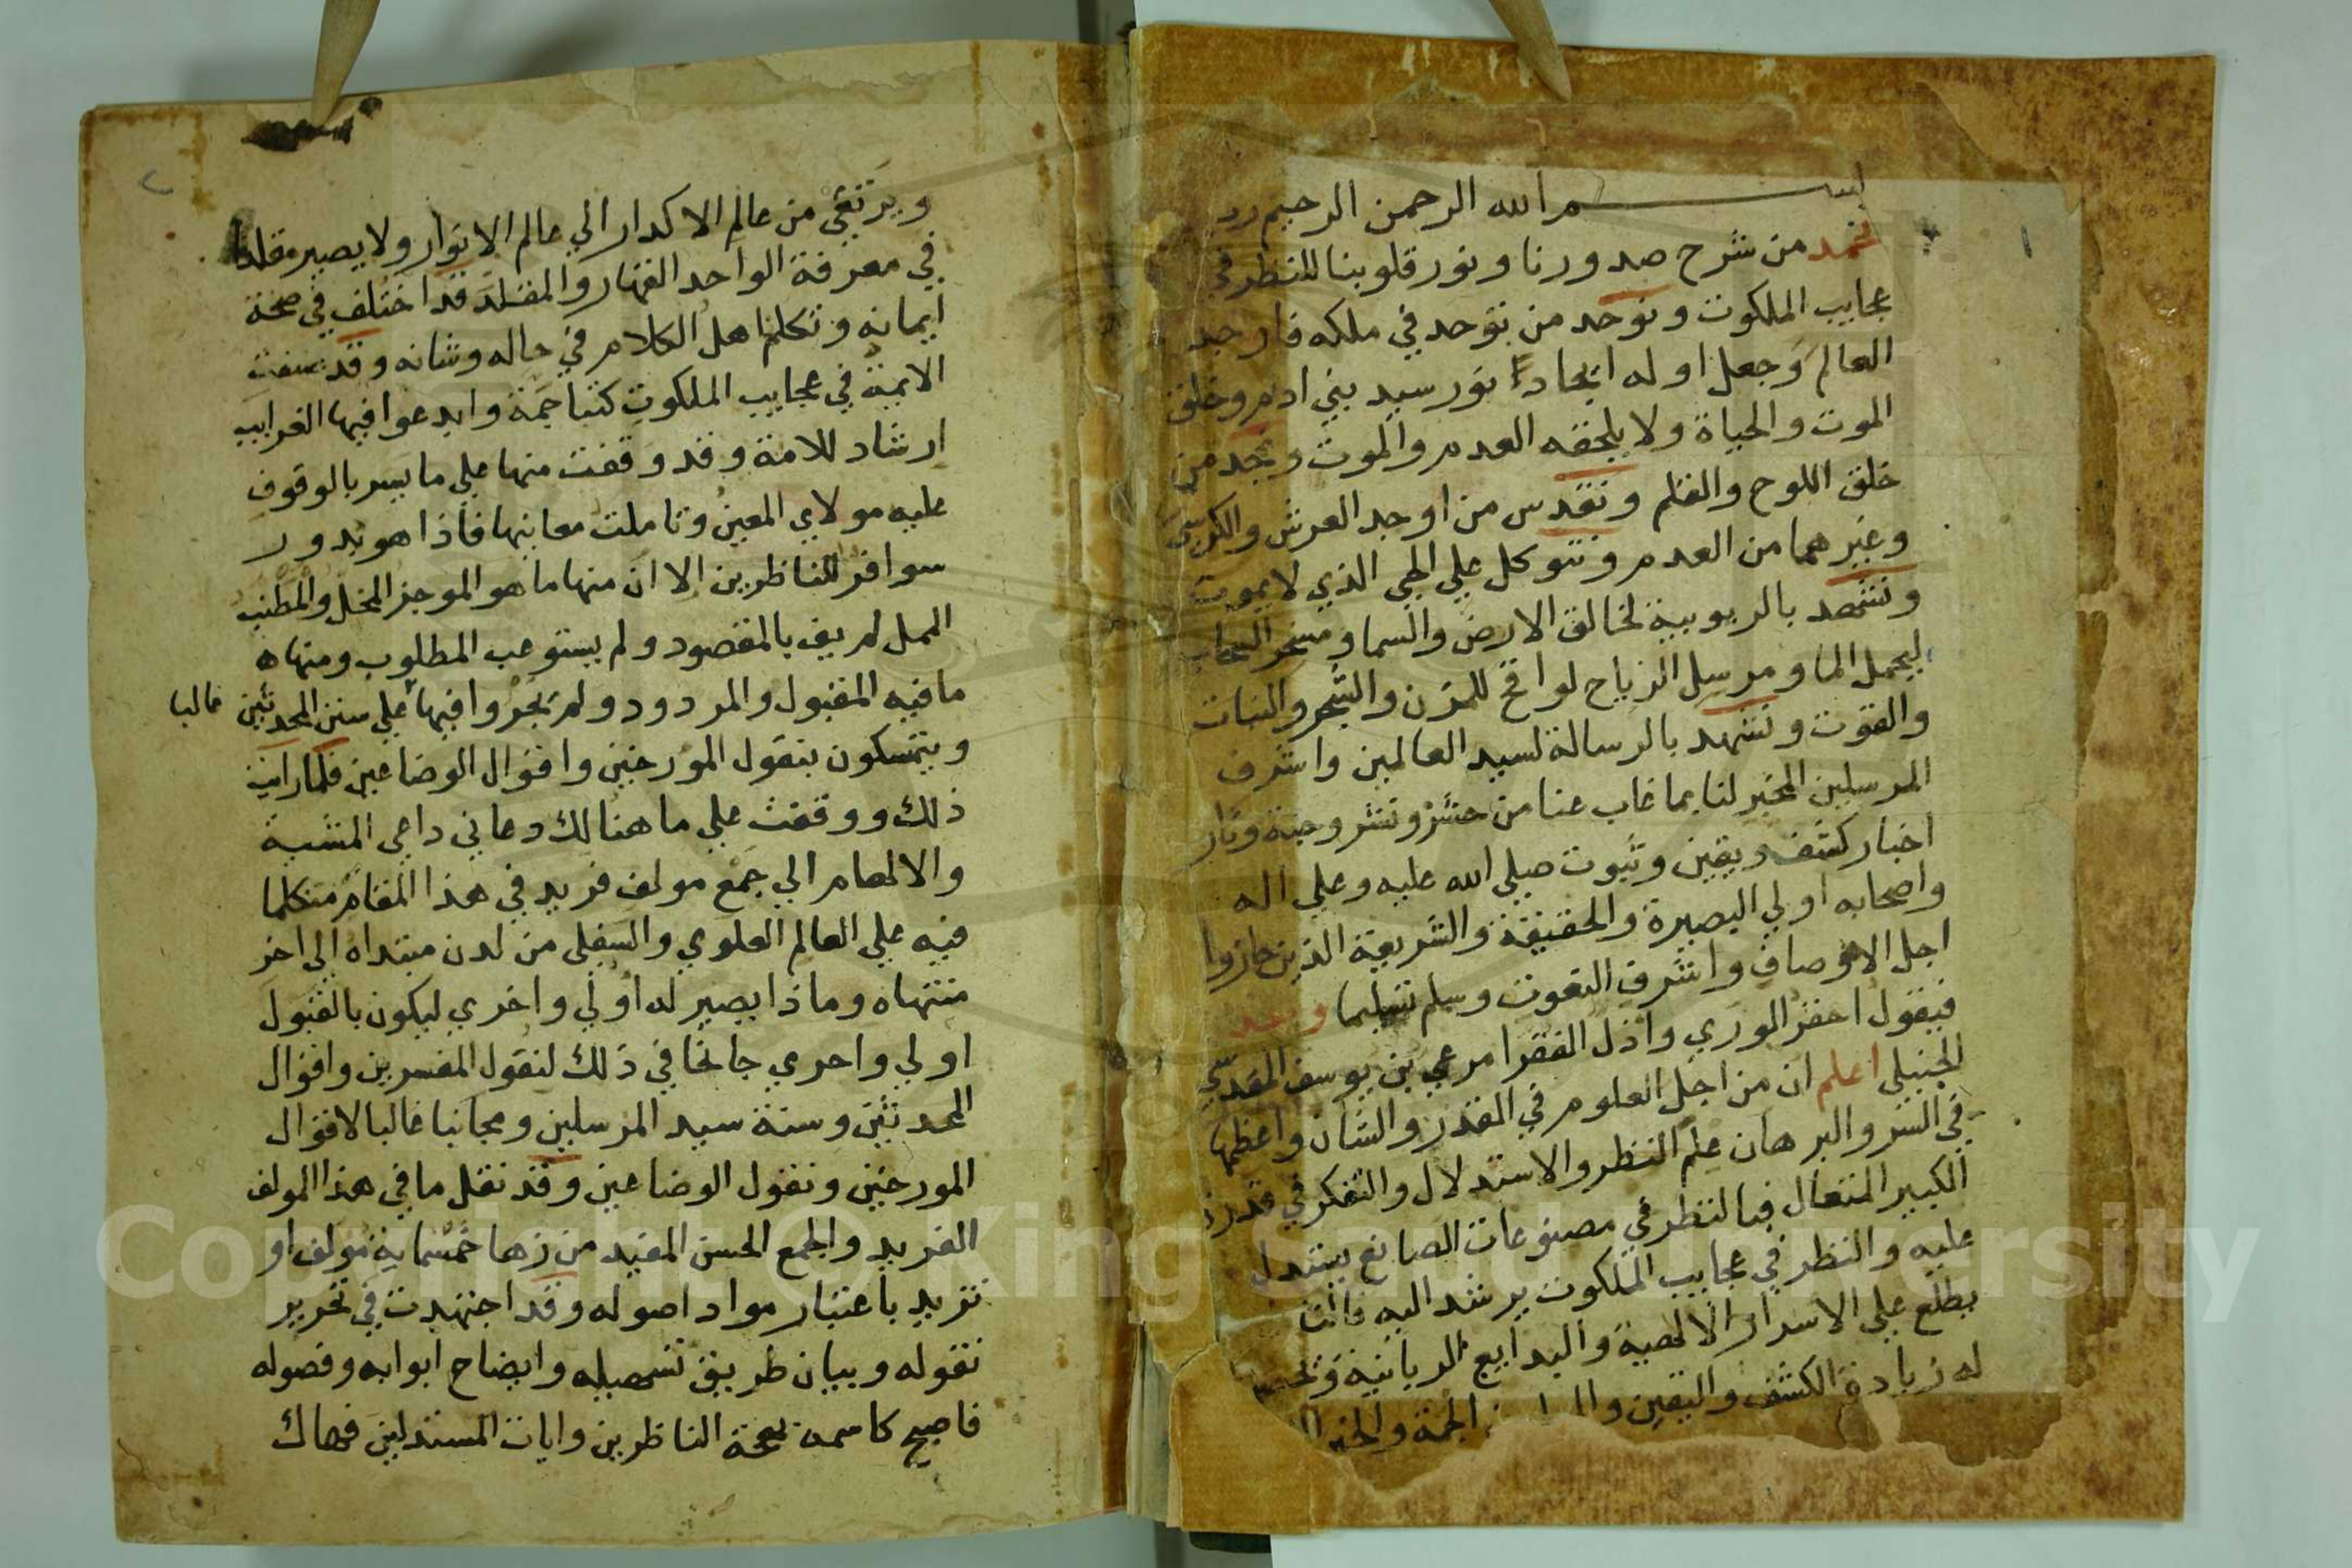 بسم الله الرحمن الرحيم
نحمد من شرح صدورنا ونور قلوبنا للنظر في
عجايب الملكوت ونوحد من توحد في ملكه فاوجد
العالم وجعل اوله ايجاداً نور سيد بني ادم وخلق
الموت والحياة ولا يلحقه العدم والموت ونمجد من
خلق اللوح والقلم ونقدس من اوجد العرش والكرسي
وغيرهما من العدم ونتوكل علي الحي الذي لا يموت
ونشهد بالربوبية لخالق الارض والسما ومسخر السحاب
ليحمل الما ومرسل الرياح لواقح للمزن والشجر والنبات
والقوت ونشهد بالرسالة لسيد العالمين واشرف
المرسلين المخبر لنا بما غاب عنا من حشر ونشر وجنة ونار
اخبار كشف ويقين وثبوت صلي الله عليه وعلي اله
واصحابه اولي البصيرة والحقيقة والشريعة الذين حازوا
اجل الاوصاف واشرف النعوت وسلم تسليما وبعد
فيقول احقر الوري واذل الفقرا مرعي بن يوسف المقدسي
الحنبلي اعلم ان من اجل العلوم في القدر والشان واعظمها
في السر والبرهان علم النظر والاستدلال والتفكر في قدرة
الكبير المتعال فبالنظر في مصنوعات الصانع يستدل
عليه والنظر في عجايب الملكوت يرشد اليه فانت
يطلع علي الاسرار الالهية والبدايع الربانية
له زيادة الكشف واليقين الجمة
ويرتقي من عالم الاكدار الي عالم الانوار ولا يصير مقلدا
في معرفة الواحد القهار والمقلد قد اختلف في صحة
ايمانه وتكلم اهل الكلام في حاله وشانه وقد صنفت
الايمة في عجايب الملكوت كتبا جمة وابدعوا فيها الغرايب
ارشاد للامة وقد وقفت منها علي ما يسر بالوقوف
عليه مولاي المعين وتاملت معانيها فاذا هو بدور
سوافر للناظرين الا ان منها ما هو الموجز المخل والمطنب
الممل لم يف بالمقصود ولم يستوعب المطلوب ومنها
ما فيه المقبول والمردود ولم يجروا فيها علي سنن المحدثين غالبا
ويتمسكون بنقول المورخين واقوال الوضاعين فلما رايت
ذلك ووقفت علي ما هنالك دعاني داعي المشية
والالهام الي جمع مولف فريد في هذا المقام متكلما
فيه علي العالم العلوي والسفلي من لدن مبتداه الي اخر
منتهاه وماذا يصير له اولي واخري ليكون بالقبول
اولي واحري جانحا في ذلك لنقول المفسرين واقوال
المحدثين وسنة سيد المرسلين ومجانبا غالبا لاقوال
المورخين ونقول الوضاعين وقد نقل ما في هذا المولف
الفريد والجمع الحسن المفيد من زها خمسماية مولف او
تزيد باعتبار مواد اصوله وقد اجتهدت في تحرير
نقوله وبيان طريق تسهيله وايضاح ابوابه وفصوله
فاصبح كاسمه بهجة الناظرين وايات المستدلين فهاك